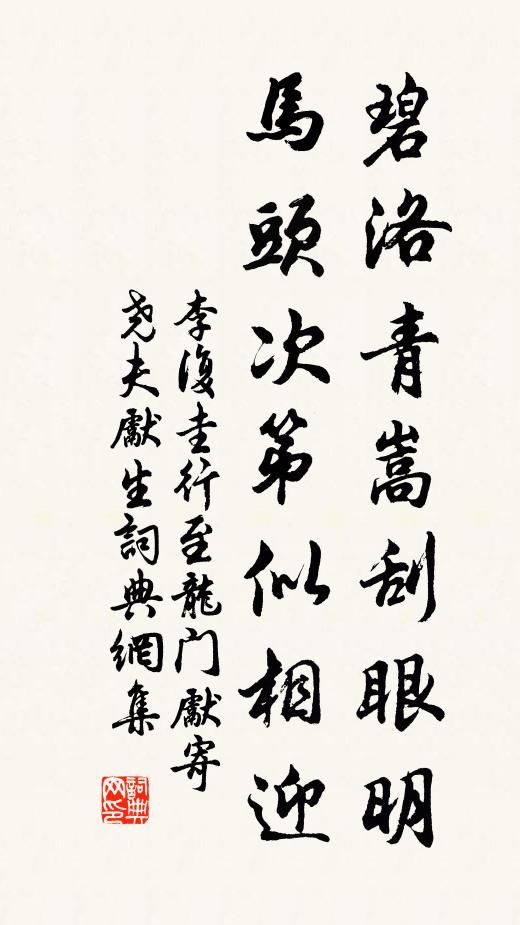 碧洛青嵩刮眼明
馬頭次第似相迎
李復圭行至龍门獻寄
尧夫獻生詞典網集
詞典网印